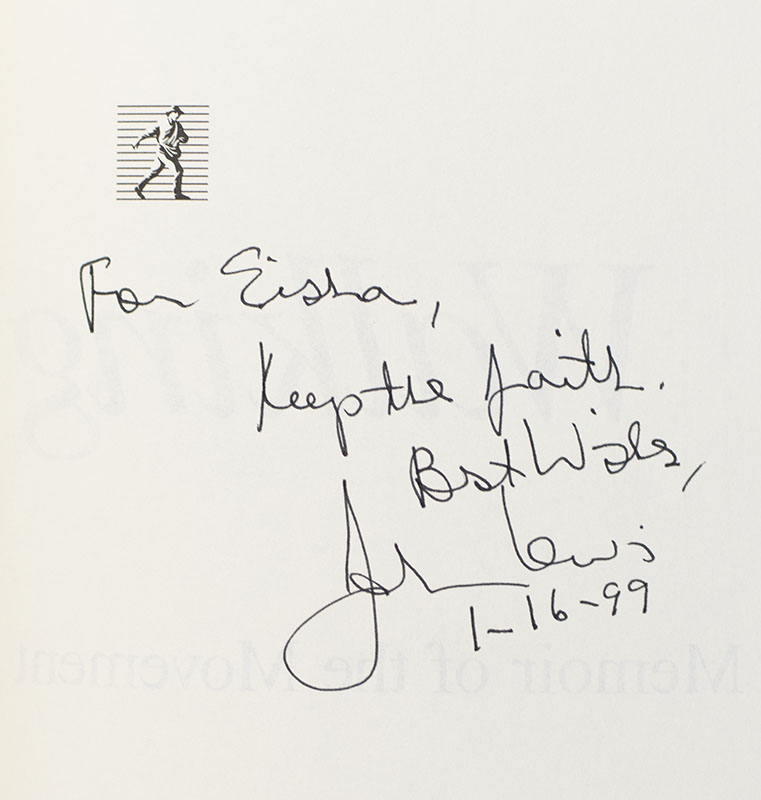 For Eisha,
Keep the faith.
Best Wishes,
John Lewis
1-16-99
Walking
Memoir of the Movement